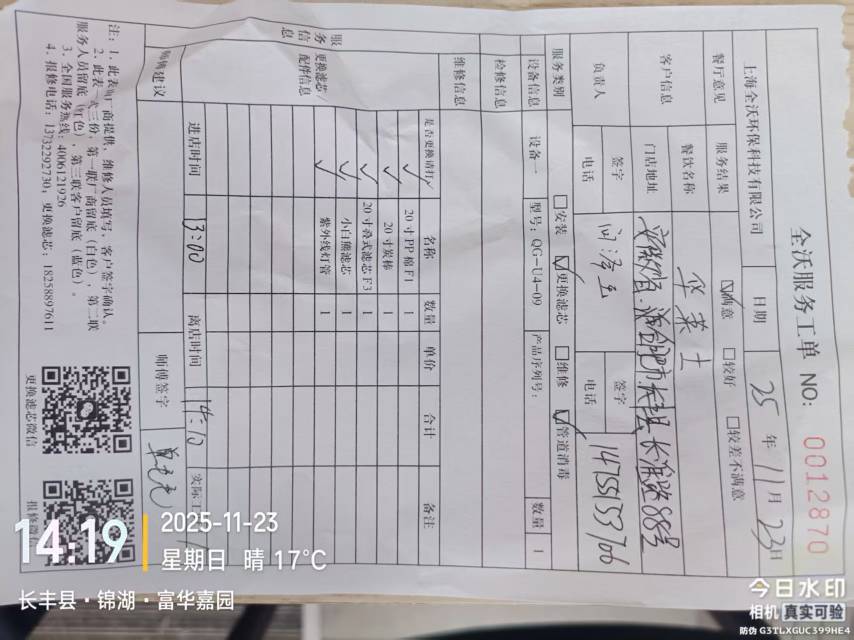 全沃服务工单 NO: 0012870
上海全沃环保科技有限公司 日期 25 年 11 月 23 日
餐厅意见 服务结果 ☑满意 □较好 □较差不满意
客户信息 餐饮名称 华莱士
门店地址 安徽省 合肥市长丰县长淮路88号
负责人 签字 签字
电话 电话 14755153706
服务类别 □安装 ☑更换滤芯 □维修 ☑管道消毒
设备信息 设备一 型号: QG-U4-09 产品序列号: 数量 1
检修信息
维修信息
服务信息
更换滤芯/配件信息 是否更换请打✓ 名称 数量 单价 合计 备注
✓ 20 寸 PP 棉 F1 1
✓ 20 寸炭棒 1
✓ 20 寸叠式滤芯 F3 1
✓ 小白熊滤芯 1
✓ 紫外线灯管 1
进店时间 13:00 离店时间 14:10 实际
师傅建议 师傅签字
注: 1、此表厂商提供, 维修人员填写, 客户签字确认。
2、此表一式三份, 第一联厂商留底 (白色), 第二联
服务人员留底 (红色), 第三联客户留底 (蓝色)。
3、全国服务热线: 4006121926
4、报修电话: 13732292730, 更换滤芯: 18258897611
更换滤芯微信
报修微信
14:19
2025-11-23
星期日 晴 17℃
长丰县·锦湖·富华嘉园
今日水印
相机 真实可验
防伪 G3TLXGUC399HE4